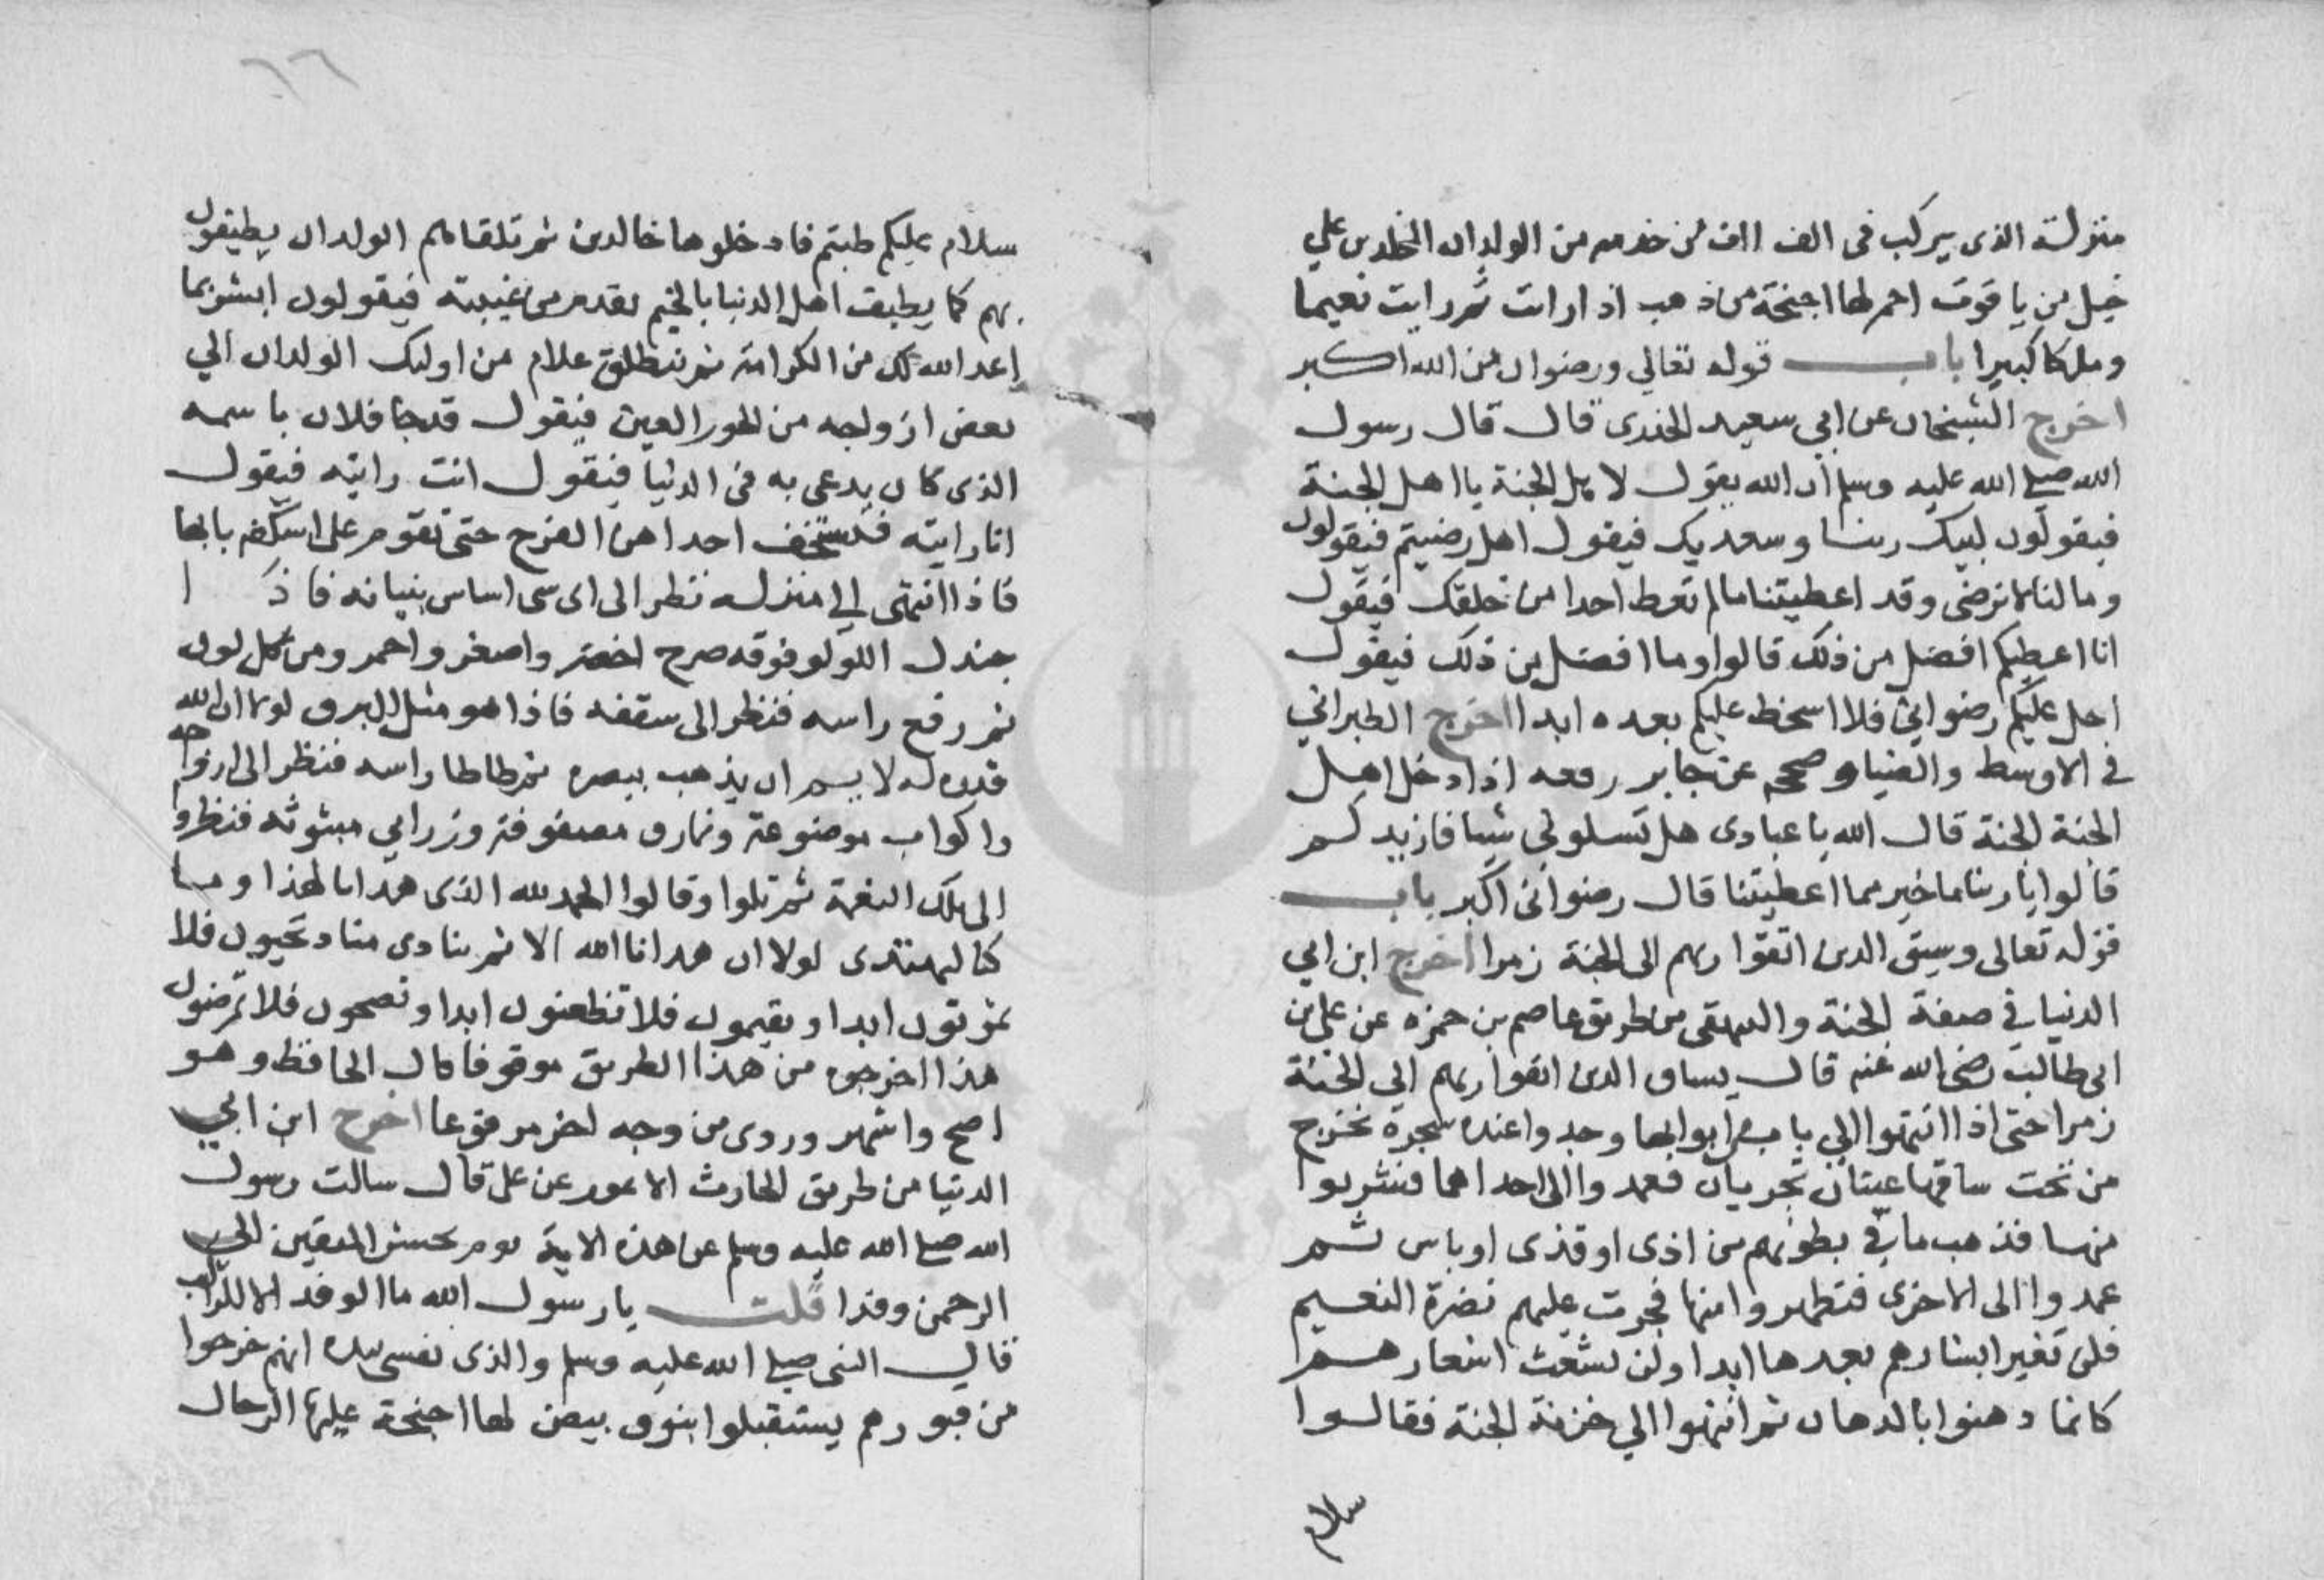 منزلة الذى يركب فى الف الف من خدمه من الولدان المخلدين على
خيل من ياقوت احمر لها اجنحة من ذهب اذا رايت ثم رايت نعيما
وملكا كبيرا باب قوله تعالي ورضوان من الله اكبر
اخرج الشيخان عن ابي سعيد الخدرى قال قال رسول
الله صلي الله عليه وسلم ان الله يقول لاهل الجنة يا اهل الجنة
فيقولون لبيك ربنا وسعديك فيقول اهل رضيتم فيقولون
وما لنا لا نرضى وقد اعطيتنا ما لم تعط احدا من خلقك فيقول
انا اعطيكم افضل من ذلك قالوا وما افضل من ذلك فيقول
احل عليكم رضواني فلا اسخط عليكم بعده ابدا اخرج الطبراني
في الاوسط والضيا وصححه عن جابر رفعه اذا دخل اهل
الجنة الجنة قال الله يا عبادى هل تسلوني شيا فازيدكم
قالوا يا ربنا ما خير مما اعطيتنا قال رضوانى اكبر باب
قوله تعالى وسيق الدين اتقوا ربهم الى الجنة زمرا اخرج ابن ابي
الدنيا في صفة الجنة والبيهقى من طريق عاصم بن حمزه عن على بن
ابى طالب رضى الله عنه قال يساق الدين اتقوا ربهم الي الجنة
زمرا حتى اذا انتهوا الي باب من ابوابها وجدوا عنده شجرة تخرج
من تحت ساقها عينان تجريان فعمدوا الى احداهما فشربوا
منها فذهب ما في بطونهم من اذى او قذى او باس ثم
عمدوا الى الاخرى فتطهروا منها فجرت عليهم نضرة النعيم
فلن تغير ابشارهم بعدها ابدا ولن تشعث اشعارهم
كانما دهنوا بالدهان ثم انتهوا الي خزنة الجنة فقالوا
سلام
٦٦
سلام عليكم طبتم فادخلوها خالدين ثم تلقاهم الولدان يطيفون
بهم كما يطيف اهل الدنيا بالحميم يقدم من غيبته فيقولون ابشر بما
اعد الله لك من الكرامة ثم ينطلق غلام من اوليك الولدان الي
بعض ازواجه من الحور العين فيقول قد جا فلان باسمه
الذى كان يدعى به فى الدنيا فيقول انت رايته فيقول
انا رايته فيستخف احداهن الفرح حتى تقوم على اسكفة بابها
فاذا انتهى الي منزله نظر الى اى شى اساس بنيانه فاذا
جندل اللولو فوقه صرح اخضر واصفر واحمر ومن كل لون
ثم رفع راسه فنظر الى سقفه فاذا هو مثل البرق لولا ان الله
قدره له لا يسم ان يذهب ببصره ثم طاطا راسه فنظر الى ازواجه
واكواب موضوعة ونمارق مصفوفة وزرابي مبثوثه فنظروا
الى تلك النعمة ثم تلوا وقالوا الحمد لله الذى هدانا لهذا وما
كنا لنهتدى لولا ان هدانا الله الا ثم ينادى مناد تحيون فلا
تموتون ابدا وتقيمون فلا تظعنون ابدا وتصحون فلا تمرضون
هذا اخرجوه من هذا الطريق موقوفا قال الحافظ وهو
اصح واشهر وروى من وجه اخر مرفوعا اخرج ابن ابي
الدنيا من طريق الحارث الاعور عن على قال سالت رسول
الله صلي الله عليه وسلم عن هذه الاية يوم نحشر المتقين الي
الرحمن وفدا قلت يا رسول الله ما الوفد الا الراكب
قال النبى صلي الله عليه وسلم والذى نفسى بيده انهم خرجوا
من قبورهم يستقبلوا بنوق بيض لها اجنحة عليها الرحال